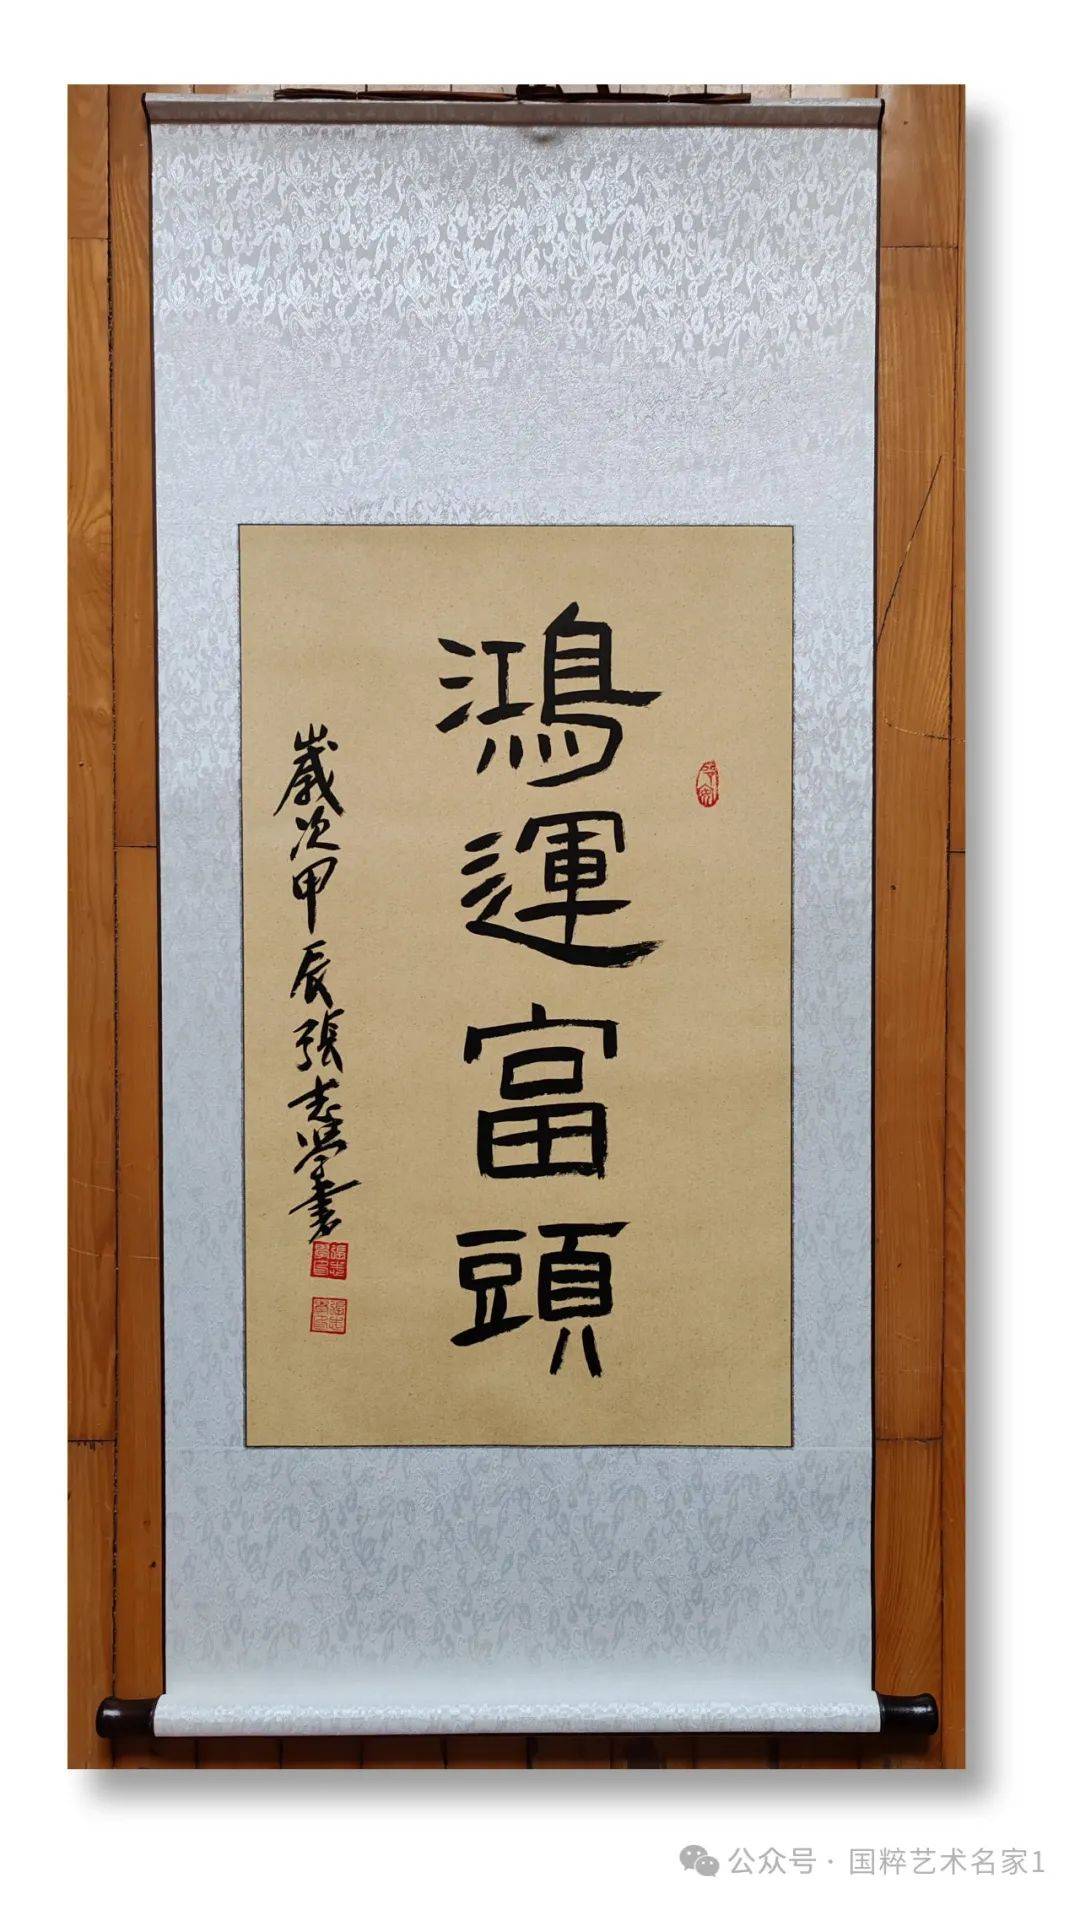 鴻運富頭
歲次甲辰張志学書
公众号 · 国粹艺术名家1